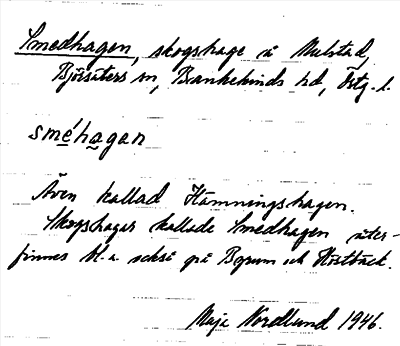 Smedhagen, skogshage å Mulstad,
Björsäters sn, Bankekinds hd, Östg. l.
sméhagan
Även kallad Hämningshagen.
Skogshagar kallade Smedhagen åter-
finnes bl.a. också på Byrum och Höstbäck.
Maja Nordlund 1946.